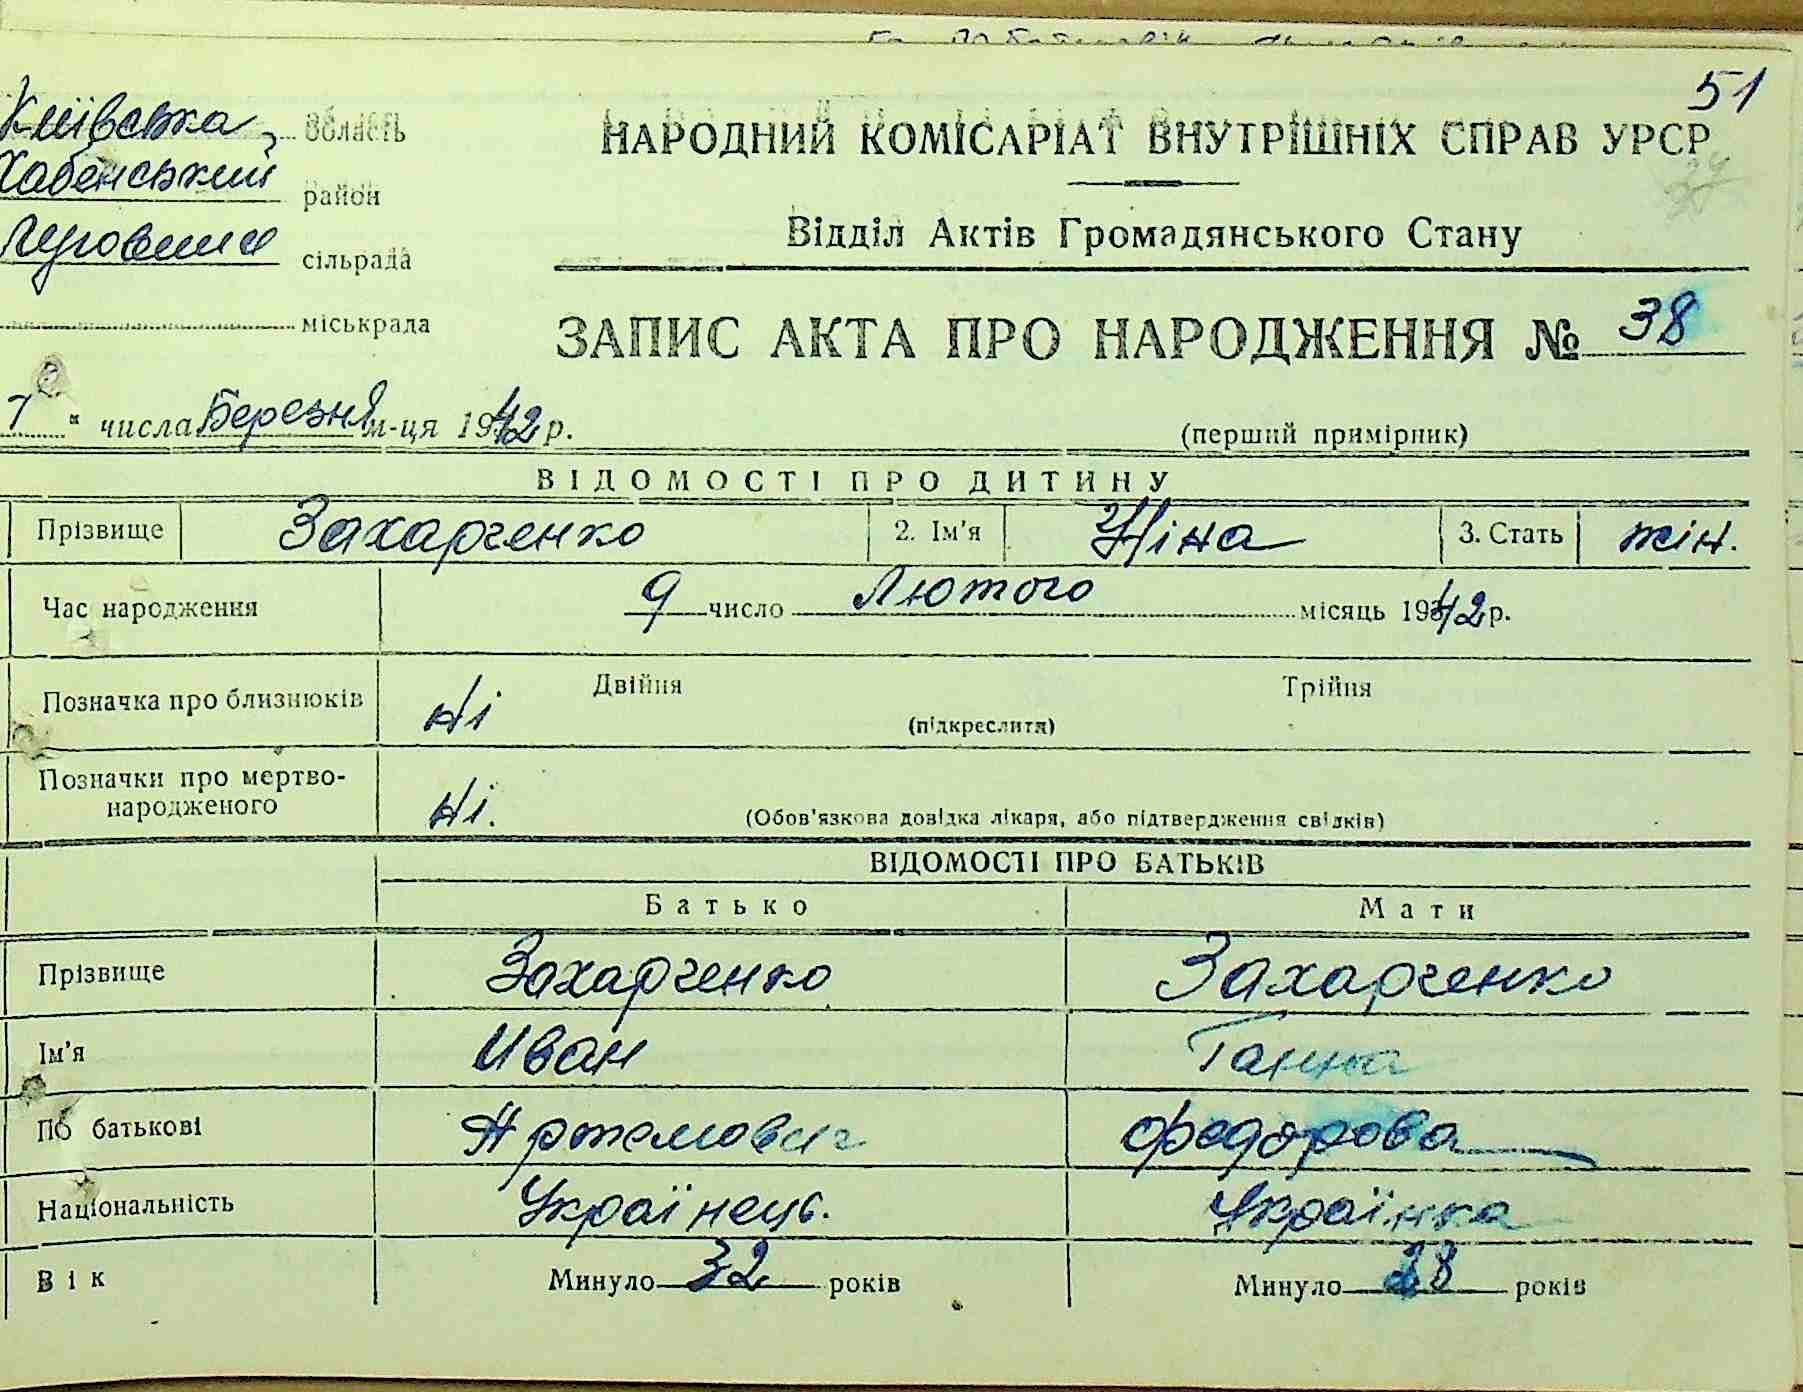 51
Київська область
НАРОДНИЙ КОМІСАРІАТ ВНУТРІШНІХ СПРАВ УРСР
Хабенський район
Відділ Актів Громадянського Стану
сільрада
міськрада
ЗАПИС АКТА ПРО НАРОДЖЕННЯ № 38
7 " числа Березня м-ця 1942 р.
(перший примірник)
ВІДОМОСТІ ПРО ДИТИНУ
Прізвище Захарченко 2. Ім'я Ніна 3. Стать жін.
Час народження 9 число Лютого місяць 1942 р.
Позначка про близнюків Ні Двійня Трійня
(підкреслити)
Позначки про мертво-
народженого Ні. (Обов'язкова довідка лікаря, або підтвердження свідків)
ВІДОМОСТІ ПРО БАТЬКІВ
Батько Мати
Прізвище Захарченко Захарченко
Ім'я Иван Ганна
По батькові Артемович Федорова
Національність Українець. Українка
Вік Минуло 32 років Минуло 28 років